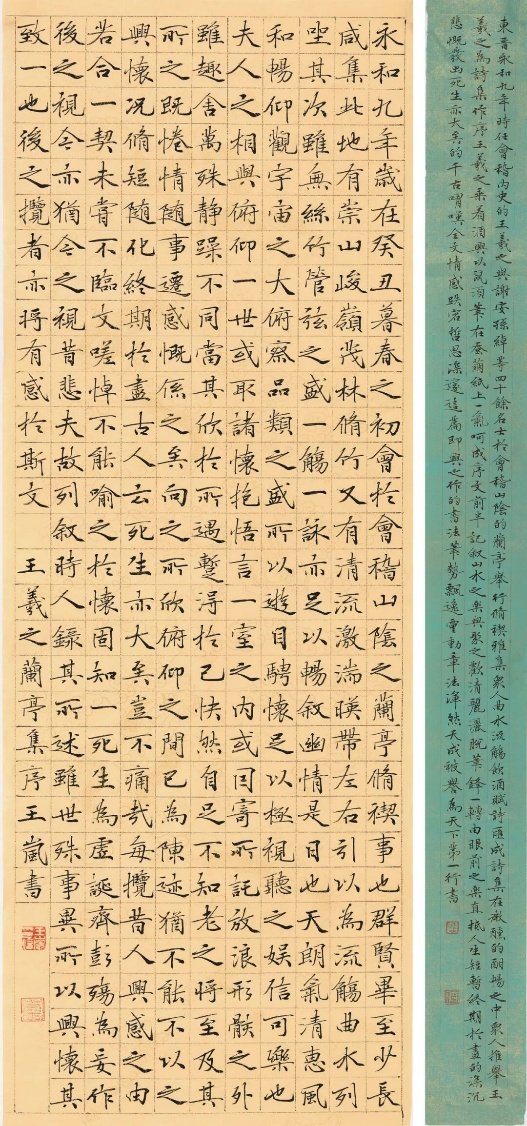 東晉永和九年時任會稽內史的王羲之與謝安孫綽等四十餘名士於會稽山陰的蘭亭舉行脩禊雅集衆人曲水流觴飲酒賦詩匯成詩集在微醺的酣暢之中衆人推舉王
羲之為詩集作序王羲之乘着酒興以鼠須筆在蠶繭紙上一氣呵成序文前半記叙山水之樂與聚之歡清麗灑脫筆鋒一轉由眼前之樂直抵人生短暫終期於盡的深沉
悲慨發出死生亦大矣的千古喟嘆全文情感跌宕哲思深邃這篇即興之作的書法筆勢飄逸靈動章法渾然天成被譽為天下第一行書
永和九年歲在癸丑暮春之初會於會稽山陰之蘭亭脩禊事也群賢畢至少長
咸集此地有崇山峻嶺茂林脩竹又有清流激湍暎帶左右引以為流觴曲水列
坐其次雖無絲竹管弦之盛一觴一詠亦足以暢叙幽情是日也天朗氣清惠風
和暢仰觀宇宙之大俯察品類之盛所以遊目騁懷足以極視聽之娱信可樂也
夫人之相與俯仰一世或取諸懷抱悟言一室之內或因寄所託放浪形骸之外
雖趣舍萬殊靜躁不同當其欣於所遇蹔得於己怏然自足不知老之將至及其
所之既惓情隨事遷感慨係之矣向之所欣俯仰之間已為陳迹猶不能不以之
興懷況脩短隨化終期於盡古人云死生亦大矣豈不痛哉每攬昔人興感之由
若合一契未嘗不臨文嗟悼不能喻之於懷固知一死生為虛誕齊彭殤為妄作
後之視今亦猶今之視昔悲夫故列叙時人錄其所述雖世殊事異所以興懷其
致一也後之攬者亦將有感於斯文 王羲之蘭亭集序王崴書